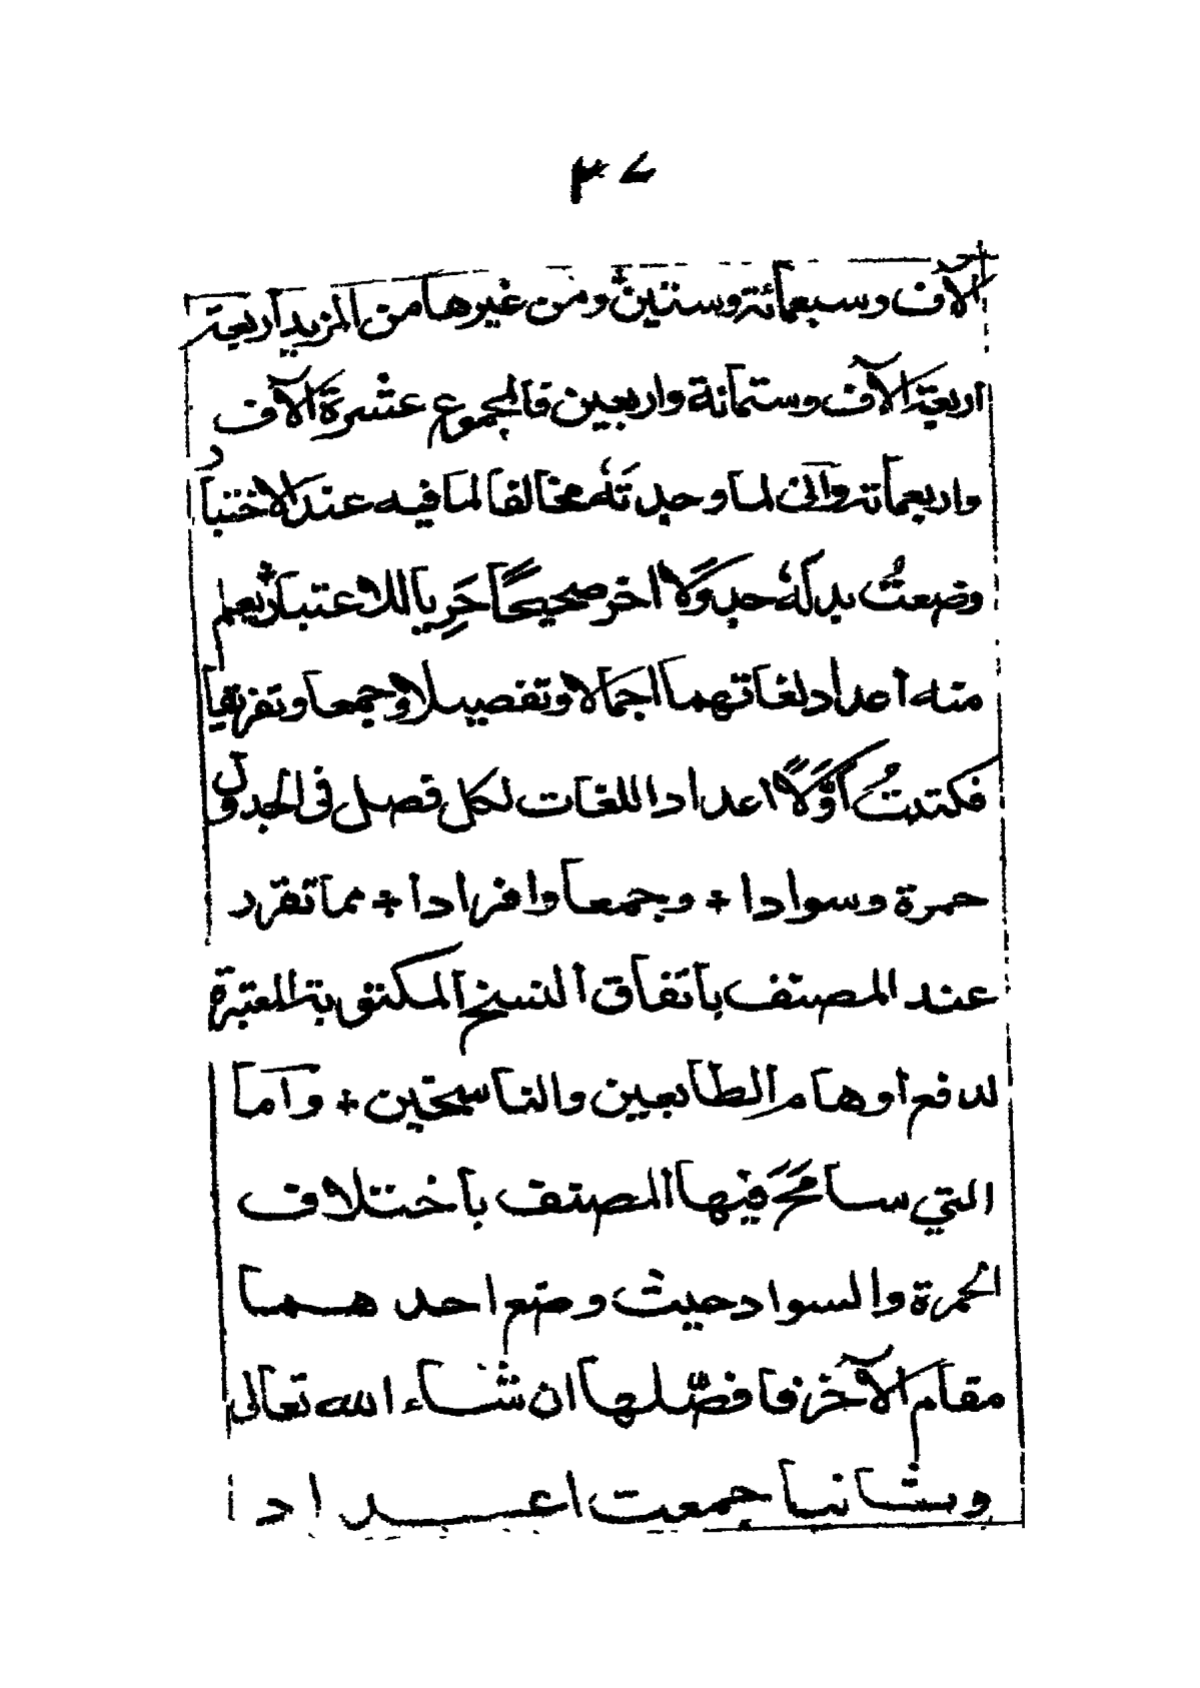 ٣٧
آلاف وسبعمائة وستين ومن غيرها من المزيد اربعة
اربعة آلاف وستمائة واربعين فالمجموع عشرة آلاف
واربعمائة واني لما وجدته مخالفا لما فيه عند الاختبار
وضعتُ بدلهٗ جدوَلًا اخر صحيحًا حَرِيا للاعتبار يعلم
منه أعداد لغاتهما اجمالا وتفصيلا وجمعا وتفريقا
فكتبتُ أوّلًا اعداد اللغات لكل فصل فى الجدول
حمرة وسوادا + وجمعا وافرادا + مما تقرد
عند المصنف باتفاق النسخ المكتوبة المعتبرة
لدفع اوهام الطابعين والناسخين + وأما
التي سامحَ فيها المصنف باختلاف
الحمرة والسواد حيث وضع احدهما
مقام الآخر فافصّلها ان شاء الله تعالى
وثانيا جمعت اعداد